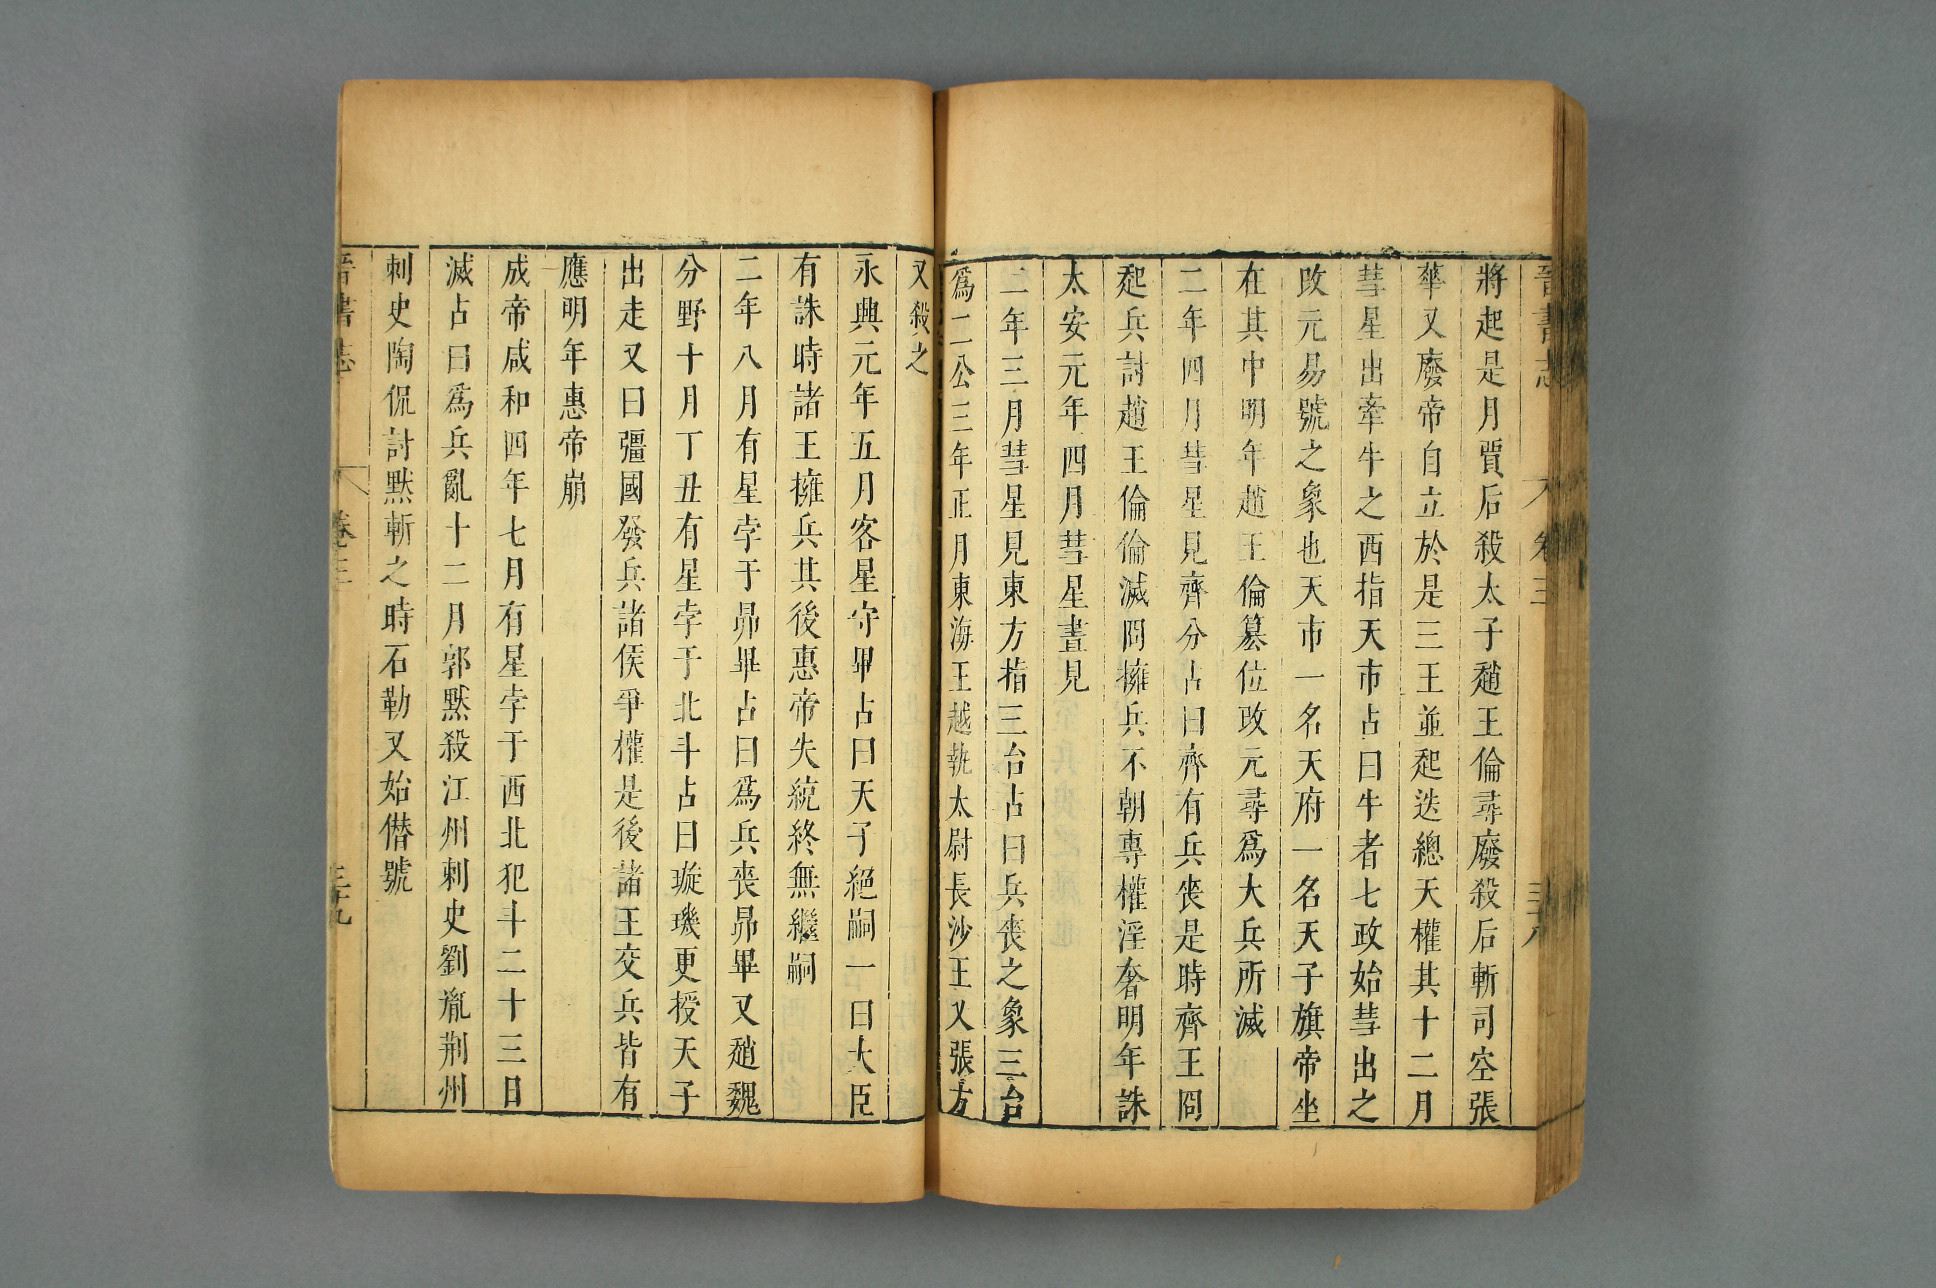 晉書志 卷三 三十八
將起是月賈后殺太子趙王倫尋廢殺后斬司空張
華又廢帝自立於是三王並起迭總天權其十二月
彗星出牽牛之西指天市占曰牛者七政始彗出之
改元易號之象也天市一名天府一名天子旗帝坐
在其中明年趙王倫篡位改元尋爲大兵所滅
二年四月彗星見齊分占曰齊有兵喪是時齊王冏
起兵討趙王倫倫滅冏擁兵不朝專權淫奢明年誅
太安元年四月彗星晝見
二年三月彗星見東方指三台占曰兵喪之象三台
爲三公三年正月東海王越執太尉長沙王乂張方
又殺之
永興元年五月客星守畢占曰天子絕嗣一曰大臣
有誅時諸王擁兵其後惠帝失統終無繼嗣
二年八月有星孛于昴畢占曰爲兵喪昴畢又趙魏
分野十月丁丑有星孛于北斗占曰璇璣更授天子
出走又曰彊國發兵諸侯爭權是後諸王交兵皆有
應明年惠帝崩
成帝咸和四年七月有星孛于西北犯斗二十三日
滅占曰爲兵亂十二月郭默殺江州刺史劉胤荆州
刺史陶侃討默斬之時石勒又始僣號
晉書志 卷三 三十九